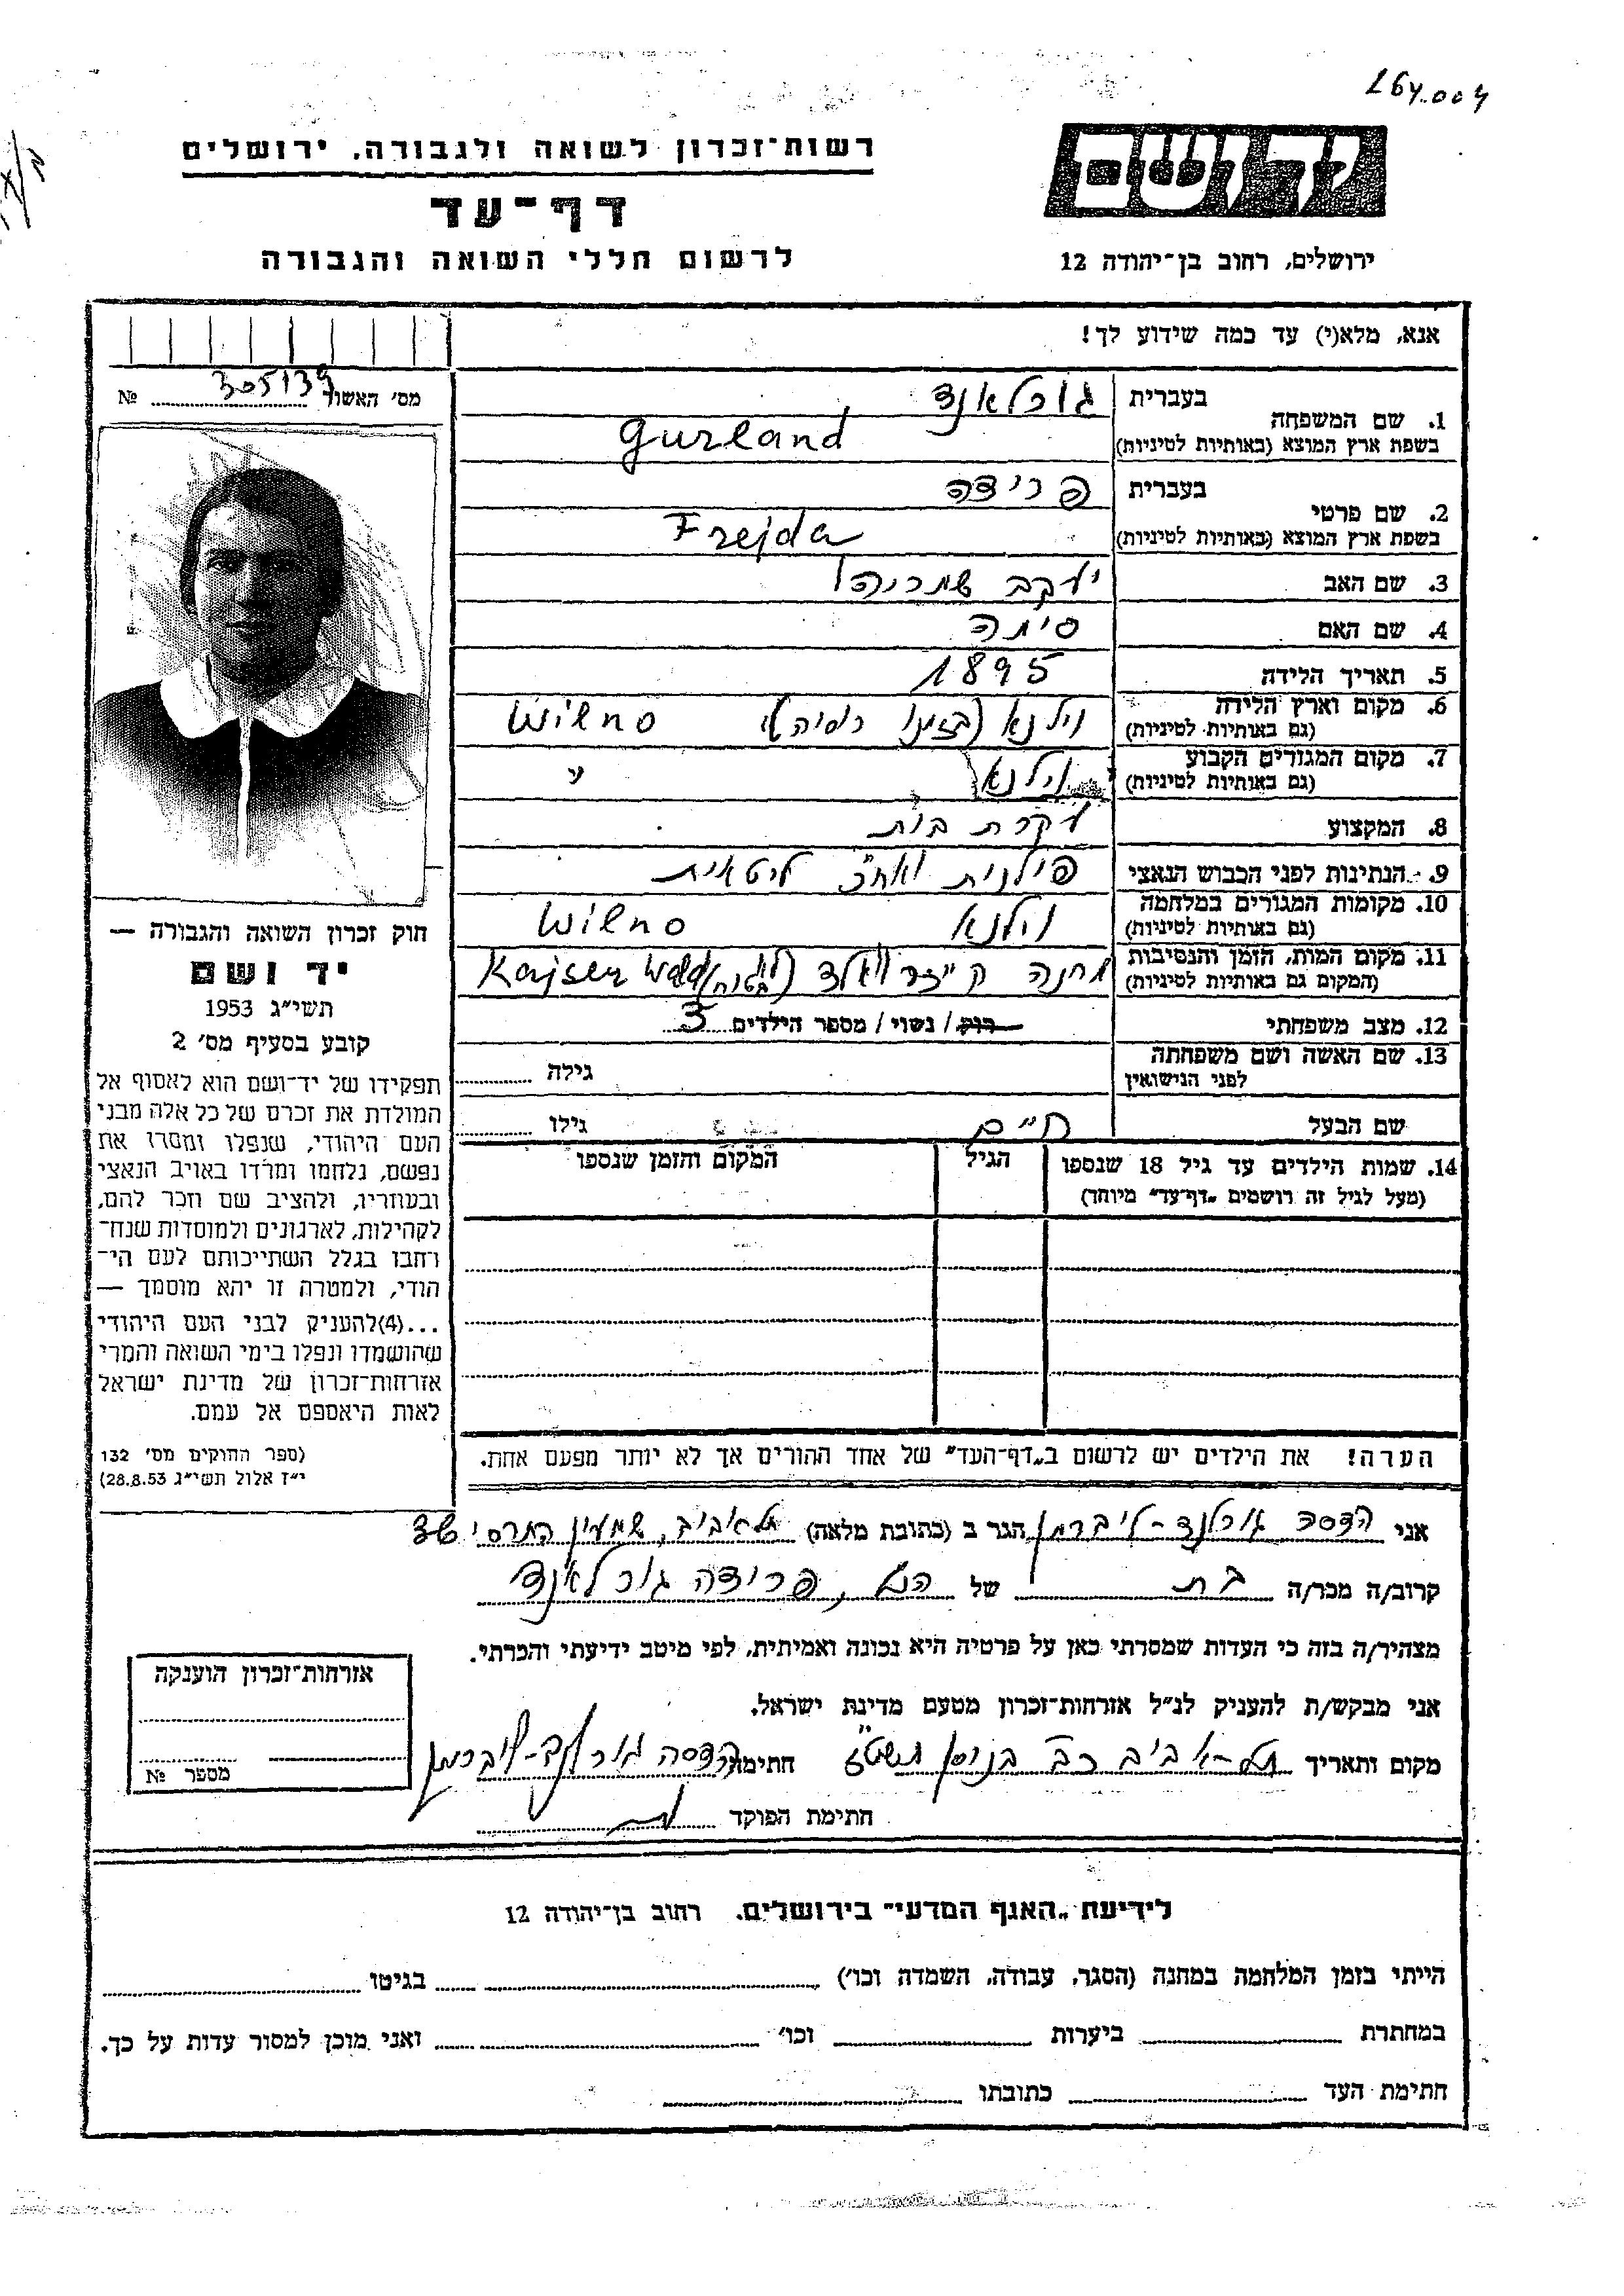 רשות־זכרון לשואה ולגבורה. ירושלים
דף־עד
לרשום חללי השואה והגבורה
ידושם
ירושלים, רחוב בן־יהודה 12
אנא, מלא(י) עד כמה שידוע לך!
מס׳ האשור 305139 №
1. שם המשפחה בעברית גורלאנד
בשפת ארץ המוצא (באותיות לטיניות) Gurland
2. שם פרטי בעברית פרידה
בשפת ארץ המוצא (באותיות לטיניות) Frejda
3. שם האב יעקב שמריהו
4. שם האם סימה
5. תאריך הלידה 1895
6. מקום וארץ הלידה (גם באותיות לטיניות) וילנא (בזמנו רוסיה) Wilno
7. מקום המגורים הקבוע (גם באותיות לטיניות) וילנא "
8. המקצוע עקרת בית
9. הנתינות לפני הכבוש הנאצי פולנית ואח״כ ליטאית
10. מקומות המגורים במלחמה (גם באותיות לטיניות) וילנא Wilno
11. מקום המות, הזמן והנסיבות (המקום גם באותיות לטיניות) מחנה קייזרוואלד Kajserwald
12. מצב משפחתי רוק / נשוי / מספר הילדים 3
13. שם האשה ושם משפחתה לפני הנישואין גילה
שם הבעל חיים גילו
14. שמות הילדים עד גיל 18 שנספו הגיל המקום והזמן שנספו
(מעל לגיל זה רושמים „דף־עד״ מיוחד)
הערה! את הילדים יש לרשום ב„דף־העד״ של אחד ההורים אך לא יותר מפעם אחת.
חוק זכרון השואה והגבורה —
יד ושם
תשי״ג 1953
קובע בסעיף מס׳ 2
תפקידו של יד־ושם הוא לאסוף אל
המולדת את זכרם של כל אלה מבני
העם היהודי, שנפלו ומסרו את
נפשם, נלחמו ומרדו באויב הנאצי
ובעוזריו, ולהציב שם וזכר להם,
לקהילות, לארגונים ולמוסדות שנח־
רבו בגלל השתייכותם לעם הי־
הודי, ולמטרה זו יהא מוסמך —
...(4)להעניק לבני העם היהודי
שהושמדו ונפלו בימי השואה והמרי
אזרחות־זכרון של מדינת ישראל
לאות היאספם אל עמם.
(ספר החוקים מס׳ 132
י״ז אלול תשי״ג 28.8.53)
אני הדסה גורלנד-ליברמן הגר ב (כתובת מלאה) תל אביב, שמעון התרסי
קרוב/ה מכר/ה בת של פרידה גורלאנד
מצהיר/ה בזה כי העדות שמסרתי כאן על פרטיה היא נכונה ואמיתית, לפי מיטב ידיעתי והכרתי.
אני מבקש/ת להעניק לנ״ל אזרחות־זכרון מטעם מדינת ישראל.
מקום ותאריך תל-אביב בניסן תשט״ז חתימה הדסה גורלנד-ליברמן
חתימת הפוקד
אזרחות־זכרון הוענקה
מספר №
לידיעת „האגף המדעי״ בירושלים. רחוב בן־יהודה 12
הייתי בזמן המלחמה במחנה (הסגר, עבודה, השמדה וכו׳) בגיטו
במחתרת ביערות וכו׳ ואני מוכן למסור עדות על כך.
חתימת העד כתובתו